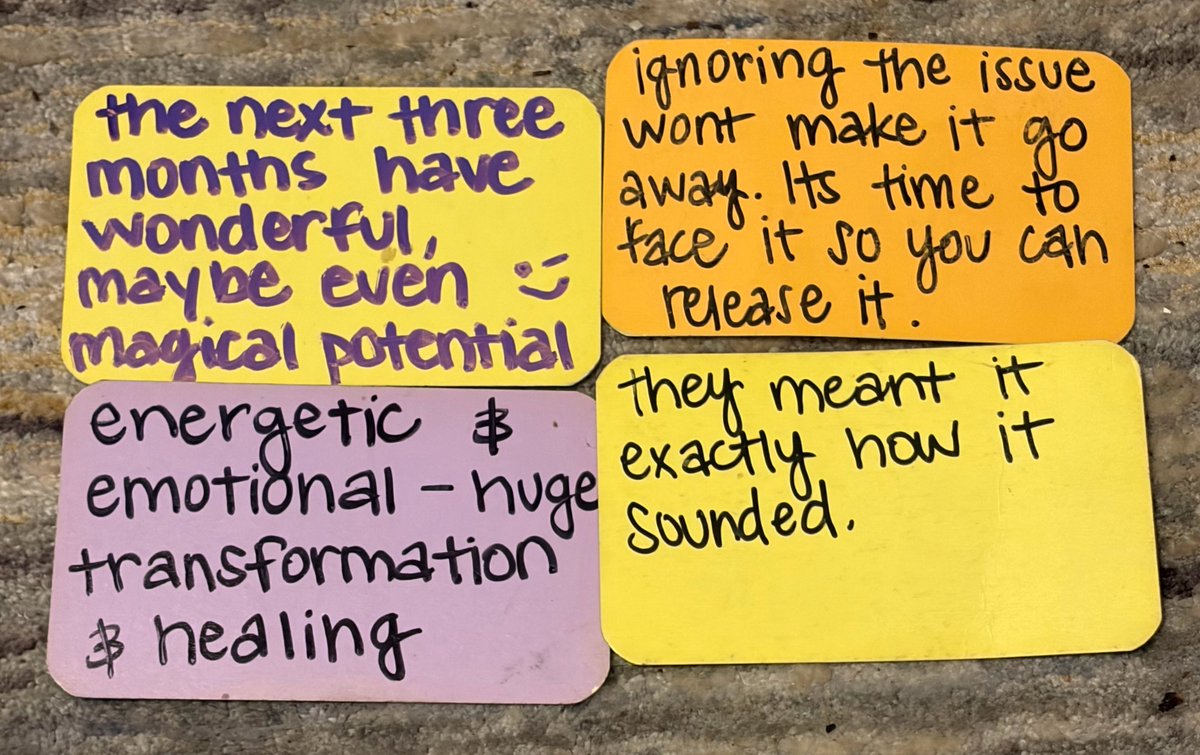 the next three
months have
wonderful,
maybe even
magical potential
ignoring the issue
wont make it go
away. Its time to
face it so you can
release it.
energetic &
emotional - huge
transformation
& healing
they meant it
exactly how it
sounded.